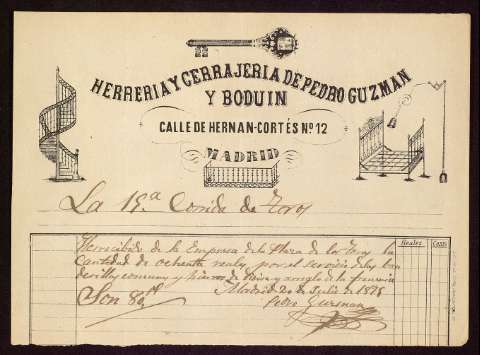 HERRERIA Y CERRAJERIA DE PEDRO GUZMAN
Y BODUIN
CALLE DE HERNAN-CORTÉS Nº 12
MADRID
La 19.ª Corrida de Toros
Reales Cents
Herrecibido de la Empresa de la Plaza de los Toros la
cantidad de ochenta reales por el servicio de las ban
derillas comunes y y arreglo de la
Son 80 Madrid 20 de Julio de 1878
Pedro Guzman